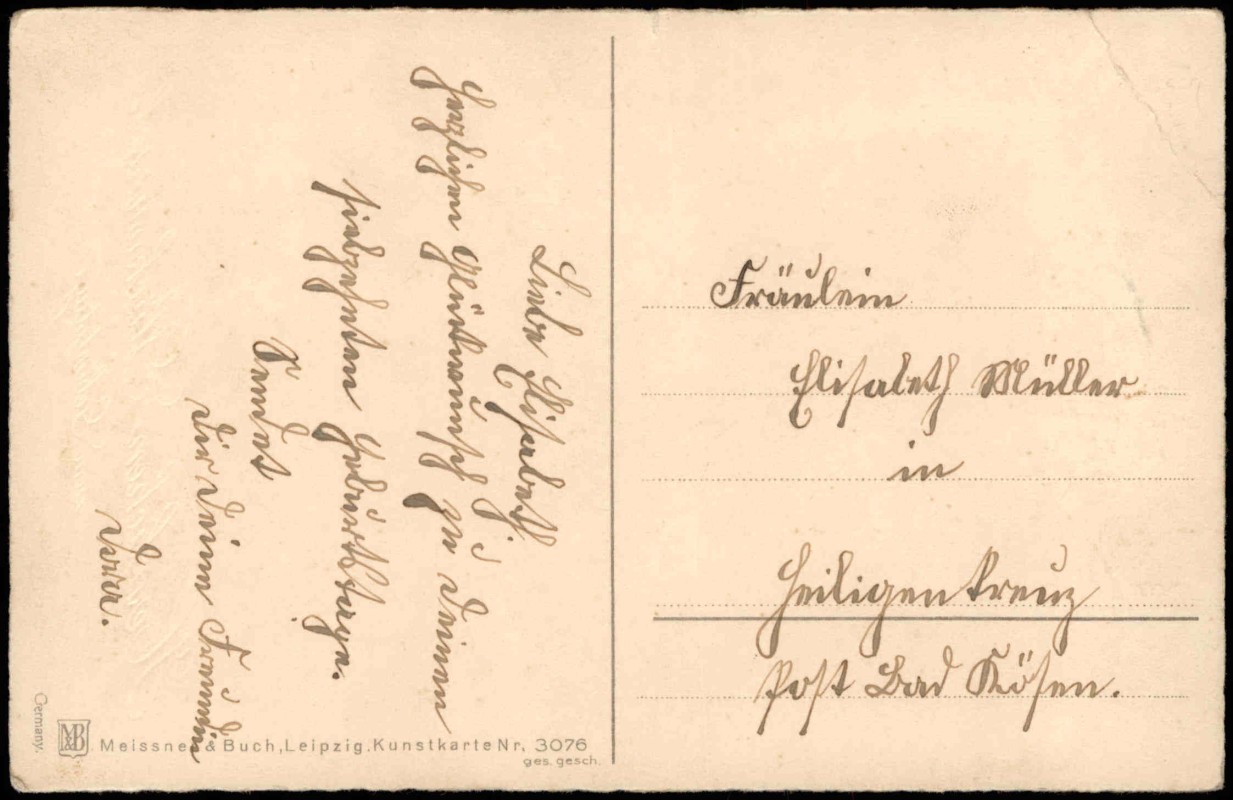 Liebe Elisabeth.
Herzlichen Glückwunsch zu deinen
siebzehnten Geburtstage.
Sendet
dir deine Freundin
Fräulein
Elisabeth Müller
in
Heiligenkreuz
Post Bad Kösen.
Germany.
M&B
Meissner & Buch, Leipzig. Kunstkarte Nr. 3076
ges. gesch.